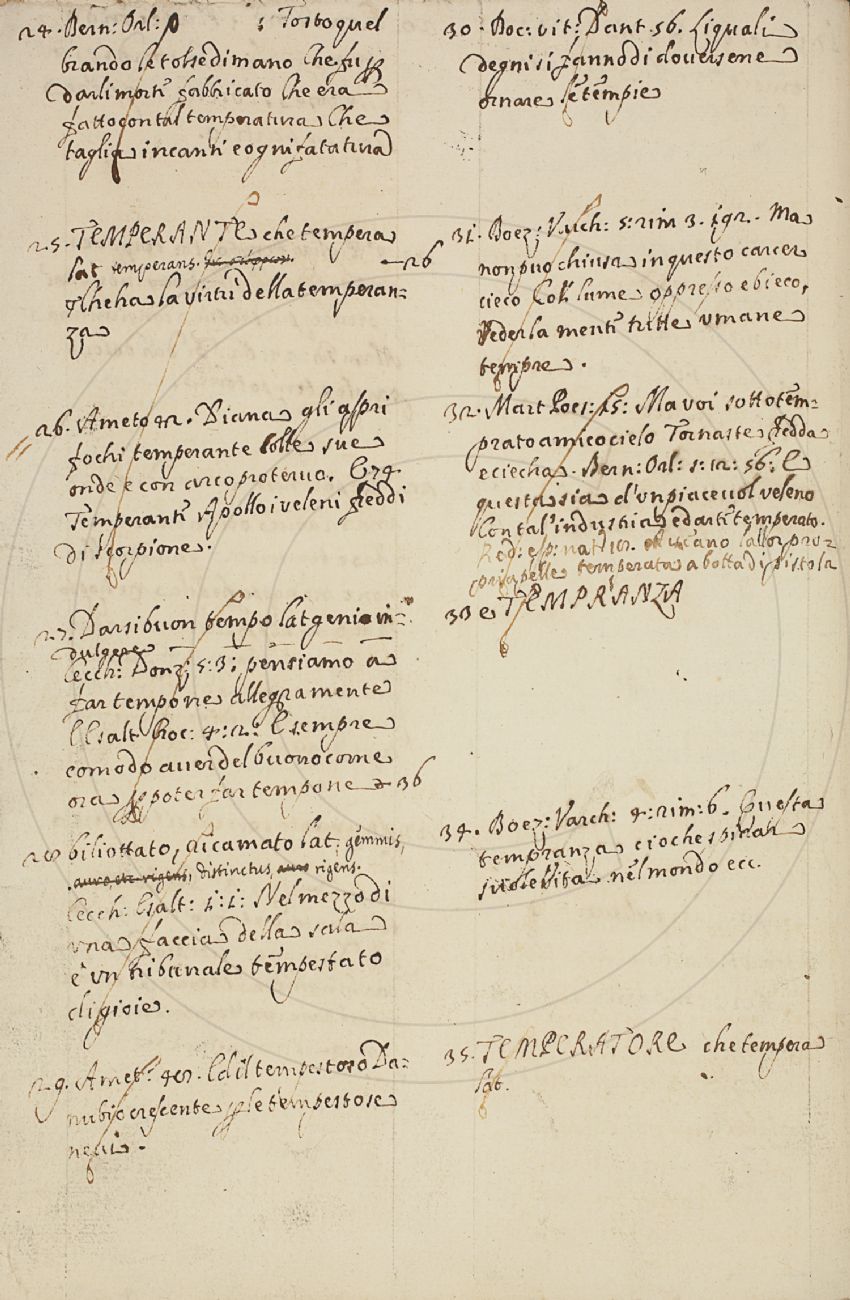 24. Bern: Orl: Tosto quel
brando le tolse di mano Che fu
dar li morti fabbricato Che era
fatto con tal temperatura Che
taglia incanti e ogni fatatura
25. TEMPERANTE che tempera
lat temperans. 26
che ha la virtù della temperan:
za
26. Ameto 42. Diana gli aspri
fochi temperante colle sue
onde e con arco protervo. E 74
Temperanti Apollo i veleni freddi
di Scorpione.
27. Darsi buon tempo lat genio in:
dulgere
Cecch: Donz: 5: 3: pensiamo a
far tempone allegramente
E Esalt Cec: 4: 12: E sempre
comodo aver del buono come
ora p poter far tempone 36
28 biliottato, ricamato lat. gemmis,
distinctus, rigens.
Cecch: Esalt: 1: 1: Nel mezzo di
una faccia della sala
è un tribunale tempestato
di gioie.
29. Amet: 42. Ed il tempestoso Da:
nubio crescente p le tempestose
nevi.
30. Boc: vit: Dant. 56. Li quali
degni si fanno di doversene
ornare le tempie
31. Boez: Varch: 5: rim 3. 192. Ma
non può chiusa in questo carcer
cieco Col lume oppresso e bieco,
Veder la menti tutte umane
tempre.
32. Mart Poes: 15: Ma voi sotto tem:
prato amico cielo Tornaste fredda
e ciecha. Bern: Orl: 1: 12: 56: E
questa sia d'un piacevol veleno
Con tal'industria ed arti temperato.
Red: esp: nat: 12. allor pro:
pria pelle temperata a botta di pistola
33 e TEMPRANZA
34. Boez: Varch: 4: rim: 6. Questa
tempranza cio che spirati
suole Vita nel mondo ecc.
35. TEMPERATORE che tempera
lat.